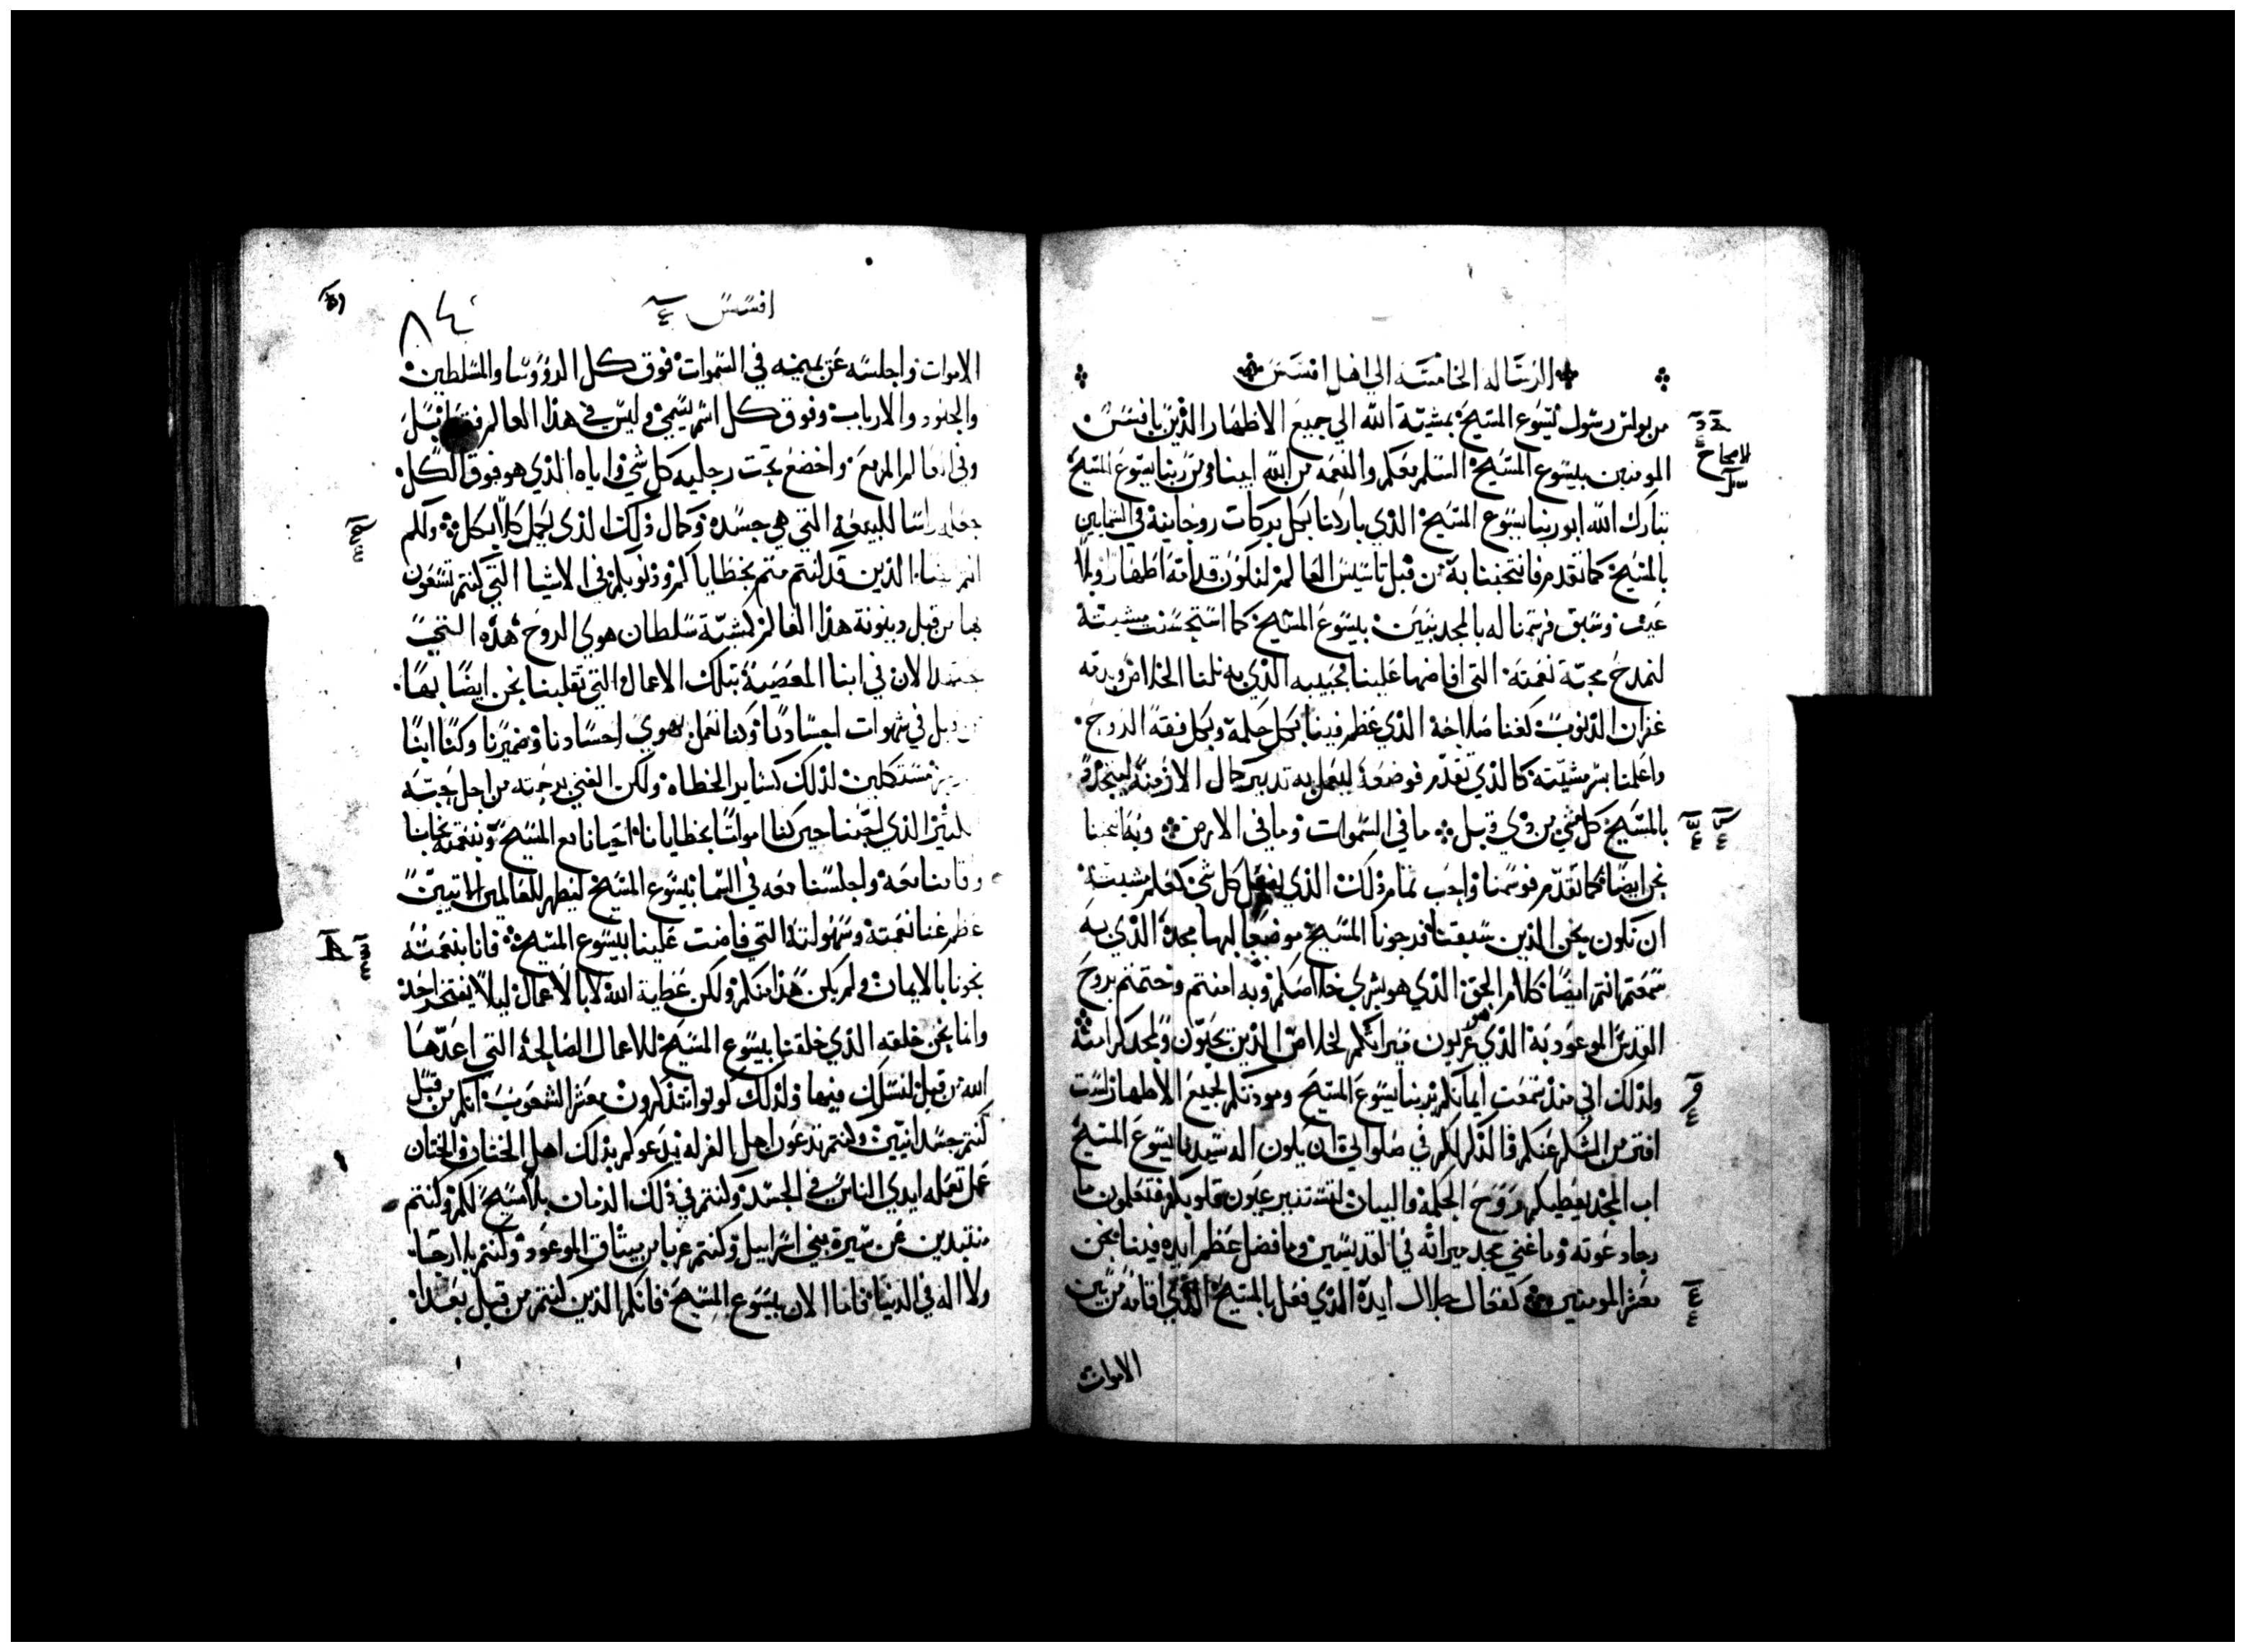 الرساله الخامسه الي اهل افسس
من بولس رسول يسوع المسيح بمشية الله الي جميع الاطهار الذين بافسس
المومنين بيسوع المسيح السلم معكم والنعمه من الله ابينا ومن ربنا يسوع المسيح
تبارك الله ابو ربنا يسوع المسيح الذي باركنا بكل بركات روحانية في السمايين
بالمسيح كما تقدم فانتجبنا به من قبل تاسيس العالم لنكون قدامه اطهار وبلا
عيب وسبق فرسمنا له بالمجد بنين بيسوع المسيح كما استحسنت مشيته
لنمدح مجة نعمته التي افاضها علينا بحبيبه الذي به نلنا الخلاص وبدمه
غفران الذنوب كغنا صلاحه الذي عظم فينا بكل حكمة وبكل فقه الروح
واعلمنا سر مشيته كالذي تقدم فوضعه ليعمل به تدبير كمال الازمنة ليتجدد
بالمسيح كل شي من ذي قبل ما في السموات وما في الارض وبه انتجبنا
نحن ايضا كما تقدم فوسمنا واحب تمام ذلك الذي يفعل كل شي كعلم مشيته
ان نكون نحن الذين سبقنا فرجونا المسيح موضعا لبها مجده الذي به
سمعتم انتم ايضا كلام الحق الذي هو بشري خلاصكم وبه امنتم وختمتم بروح
القدس الموعود به الذي هو عربون ميراثكم لخلاص الذين يحيون ولمجد كرامته
ولذلك اني منذ سمعت ايمانكم بربنا يسوع المسيح ومودتكم لجميع الاطهار لست
افتر من الشكر عنكم والذكر لكم في صلواتي ان يكون اله سيدنا يسوع المسيح
اب المجد يعطيكم روح الحكمة والبيان لتستنير عيون قلوبكم فتعلمون ما
رجا دعوته وما غني مجد ميراثه في القديسين وما فضل عظم ايده فينا نحن
معشر المومنين كفعال جلال ايده الذي فعل بالمسيح الذي اقامه من بين
الاموات
افسس
٨٤
الاموات واجلسه عن يمينه في السموات فوق كل الروؤسا والمسلطين
والجنود والارباب وفوق كل اسم يسمي وليس في هذا العالم فقط بل
وفي العالم المزمع واخضع تحت رجليه كل شي واياه الذي هو فوق الكل
جعله راسا للبيعة التي هي جسده وكمال ذلك الذي يكمل كلا بكل ولكم
انتم ايضا الذين قد كنتم متم بخطاياكم وذنوبكم في الاشيا التي كنتم تسعون
بها من قبل دينونة هذا العالم كمشية سلطان هوي الروح هذه
الان في ابنا المعصية بتلك الاعمال التي تقلبنا نحن ايضا بها
من قبل في شهوات اجسادنا وكنا نعمل بهوي اجسادنا وضميرنا وكنا ابنا
مستكلين لذلك كساير الخطاه ولكن الغني برحمته من اجل محبته
الكثير الذي احبنا حين كنا امواتا بخطايانا احيانا مع المسيح وبنعمته نجانا
واقامنا معه واجلسنا معه في السما بيسوع المسيح ليظهر للعالمين الاتيين
عظم غنا نعمته وسهولته التي فاضت علينا بيسوع المسيح فانا بنعمته
نجونا بالايمان ولم يكن هذا منكم ولكن عطية الله لا بالاعمال ليلا يفتخر احد
وانما نحن خلقه الذي خلقنا بيسوع المسيح للاعمال الصالحة التي اعدها
الله من قبل لنسلك فيها ولذلك كونوا تتذكرون معشر الشعوب انكم من قبل
كنتم جسدانيين وكنتم تدعون اهل الغرله يدعوكم بذلك اهل الختان والختان
عمل تعمله ايدي الناس في الجسد وكنتم في ذلك الزمان بلا مسيح لكم وكنتم
متبعدين عن سيرة بني اسراييل وكنتم غربا من ميثاق الموعود وكنتم بلا رجا
ولا اله في الدنيا فاما الان بيسوع المسيح فانكم الذين كنتم من قبل بعدا